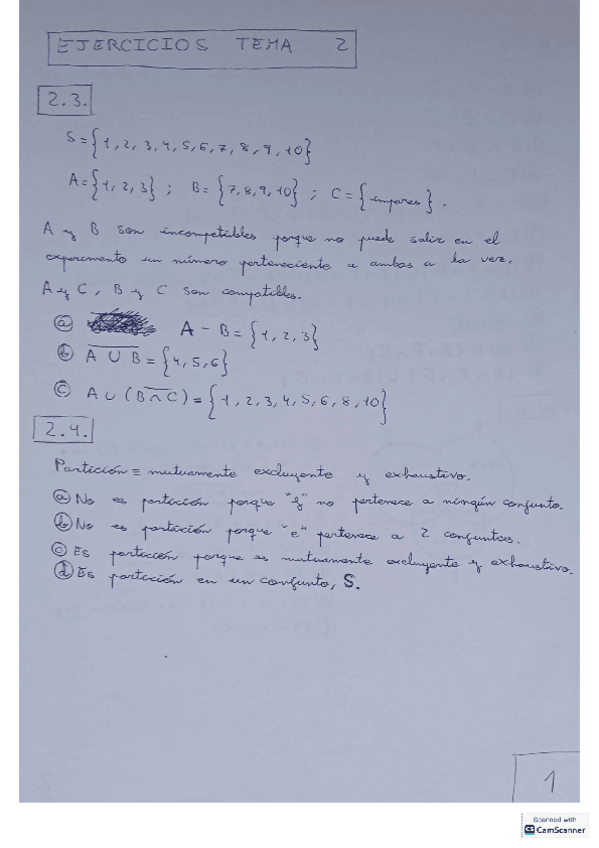 EJERCICIOS TEMA 2
2.3.
S={1, 2, 3, 4, 5, 6, 7, 8, 9, 10}
A={1, 2, 3} ; B={7, 8, 9, 10} ; C={impares}.
A y B son incompatibles porque no puede salir en el
experimento un número perteneciente a ambos a la vez.
A y C, B y C son compatibles.
ⓐ A - B = {1, 2, 3}
ⓑ \overline{A ∪ B} = {4, 5, 6}
ⓒ A ∪ (\overline{B ∩ C}) = {1, 2, 3, 4, 5, 6, 8, 10}
2.4.
Partición ≡ mutuamente excluyente y exhaustivo.
ⓐ No es partición porque "f" no pertenece a ningún conjunto.
ⓑ No es partición porque "e" pertenece a 2 conjuntos.
ⓒ Es partición porque es mutuamente excluyente y exhaustivo.
ⓓ Es partición en un conjunto, S.
1
Scanned with
CS CamScanner